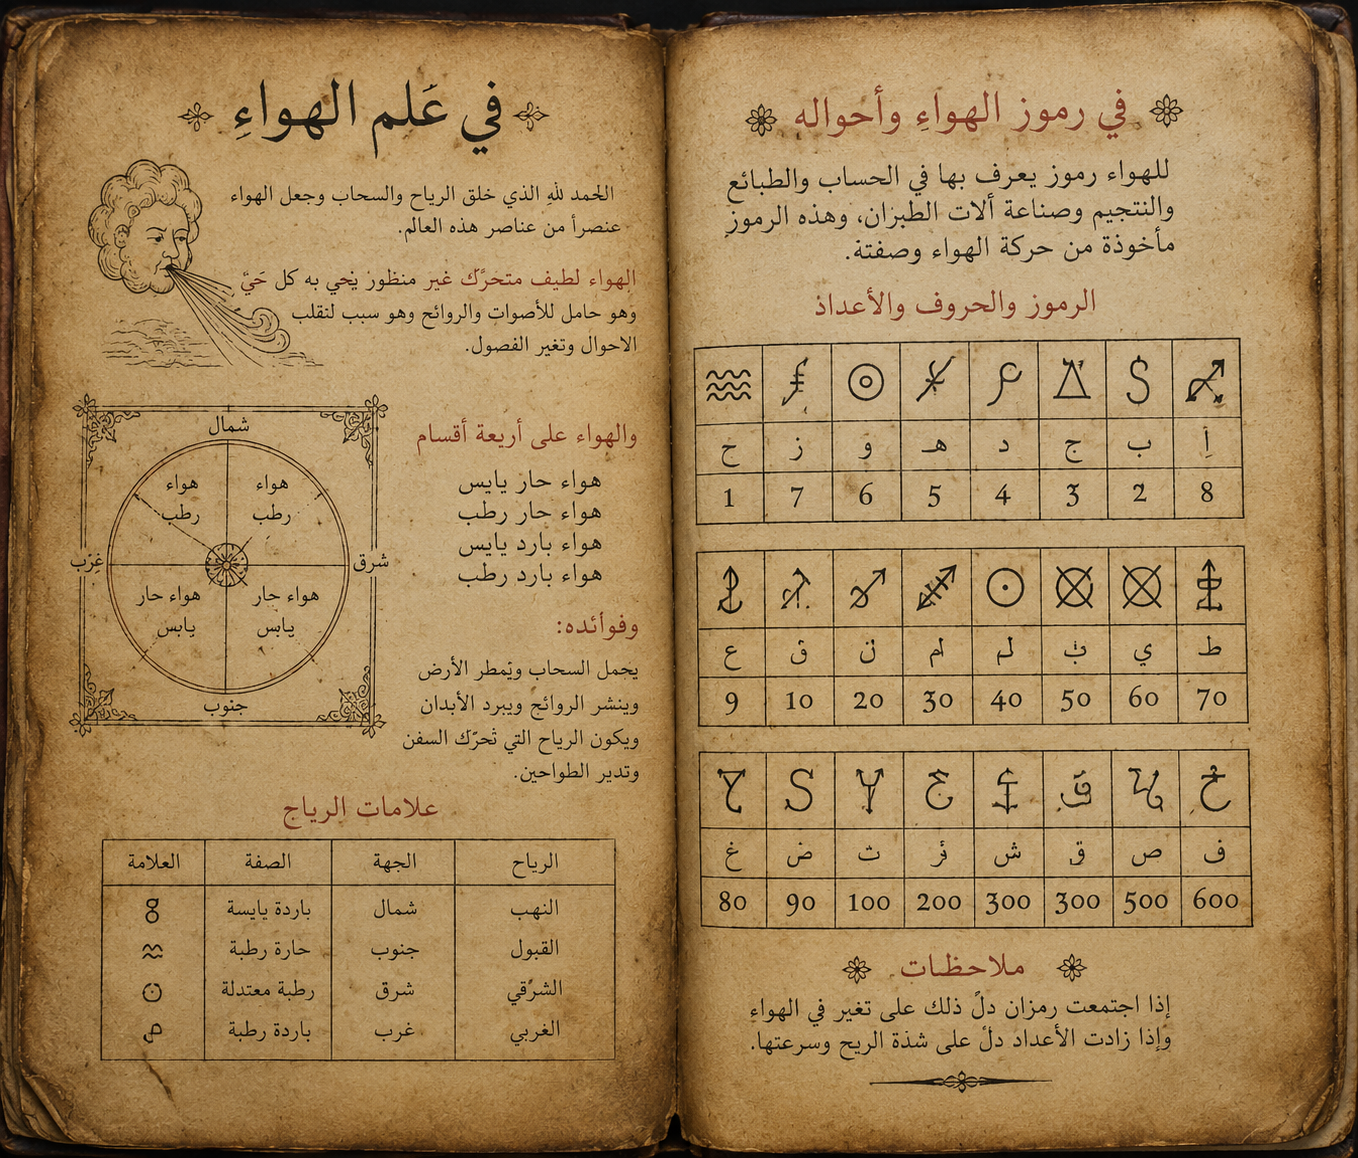 في عَلم الهواءِ
الحمد لله الذي خلق الرياح والسحاب وجعل الهواء
عنصراً من عناصر هذه العالم.
الهواء لطيف متحرّك غير منظور يَحي به كل حَيّ
وهو حامل للأصوات والروائح وهو سبب لنقلب
الاحوال وتغير الفصول.
والهواء على أريعة أقسام
هواء حار يايس
هواء حار رطب
هواء بارد يايس
هواء بارد رطب
شمال
هواء رطب
هواء رطب
شرق
غرّب
هواء حار يابس
هواء حار يابس
جنوب
وفوائده:
يحمل السحاب ويَمطر الأرض
وينشر الروائح ويبرد الأبدان
ويكون الرياح التي تُحرّك السفن
وتدير الطواحين.
علامات الرياج
الرياح الجهة الصفة العلامة
النهب شمال باردة يايسة
القبول جنوب حارة رطبة
الشرُقي شرق رطبة معتدلة
الغربي غرب باردة رطبة
في رموز الهواءِ وأحواله
للهواء رموز يعرف بها في الحساب والطبائع
والنتجيم وصناعة ألات الطبزان، وهذه الرموز
مأخوذة من حركة الهواء وصفتة.
الرموز والحروف والأعداذ
أ ب ج د هـ و ز ح
8 2 3 4 5 6 7 1
ط ي لم ام ن ق ع
70 60 50 40 30 20 10 9
ف ص ق ش ث ض غ
600 500 300 300 200 100 90 80
ملاحظات
إذا اجتمعت رمزان دلّ ذلك على تغير في الهواء
وإذا زادت الأعداد دلّ على شدة الريح وسرعتها.